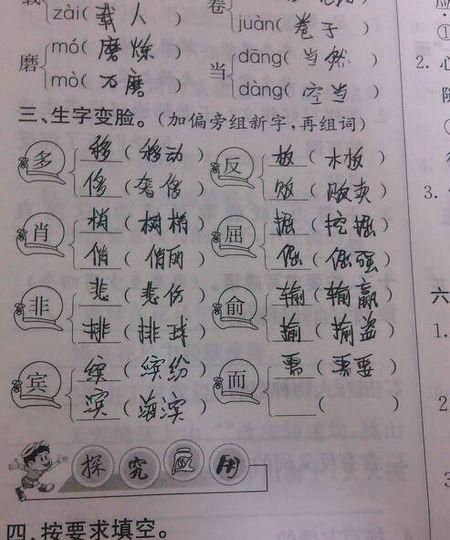 zài(载人) juàn(卷子)
磨 mó(磨炼) 当 dāng(当然)
mò(石磨) dàng(空当)
三、生字变脸。(加偏旁组新字,再组词)
多 移(移动) 反 板(木板)
侈(奢侈) 贩(贩卖)
肖 梢(树梢) 屈 掘(挖掘)
俏(俏丽) 倔(倔强)
非 悲(悲伤) 俞 输(输赢)
排(排球)
宾 缤(缤纷) 而 需(需要)
滨(海滨) ( )
探究应用
四、按要求填空。
2.
3.
六
1.
2
3